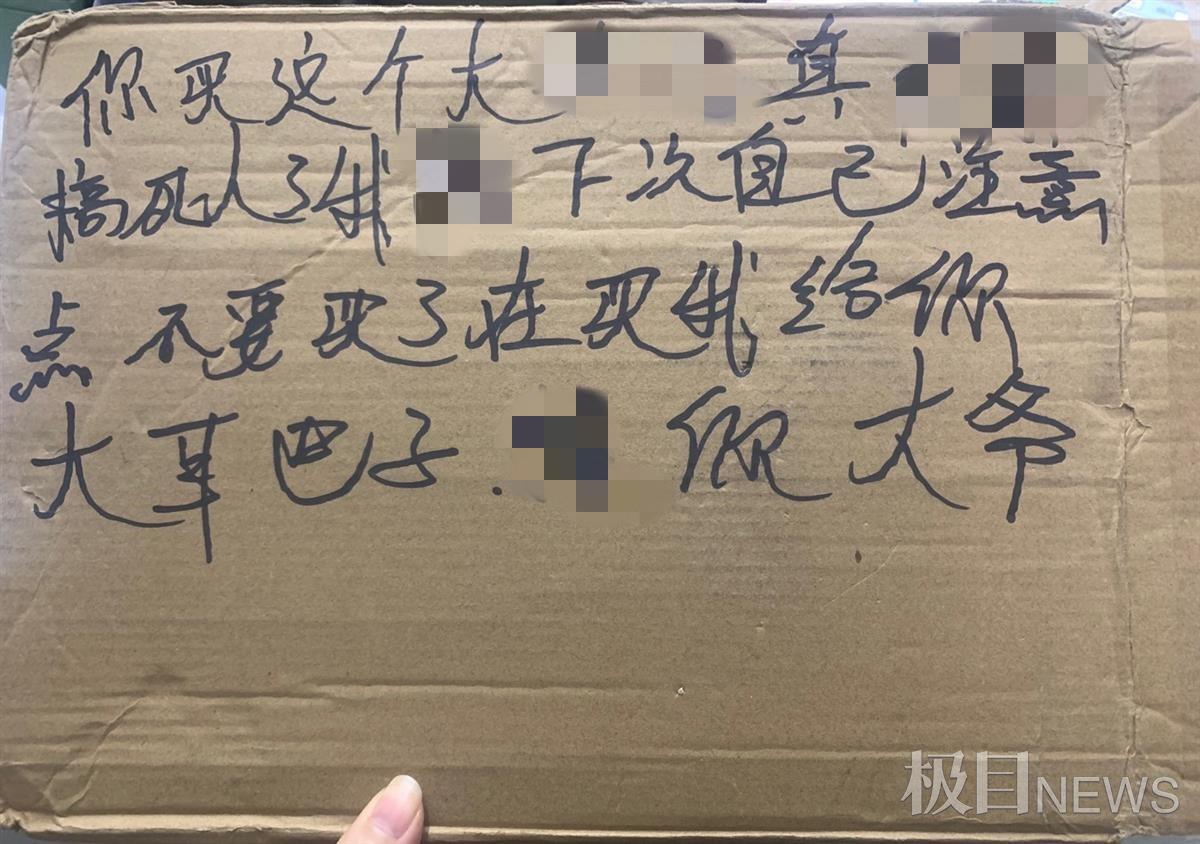 你买这个大 真
搞死人了我 下次自己注意
点 不要买了在买我给你
大车巴子. 你大爷
极目NEWS